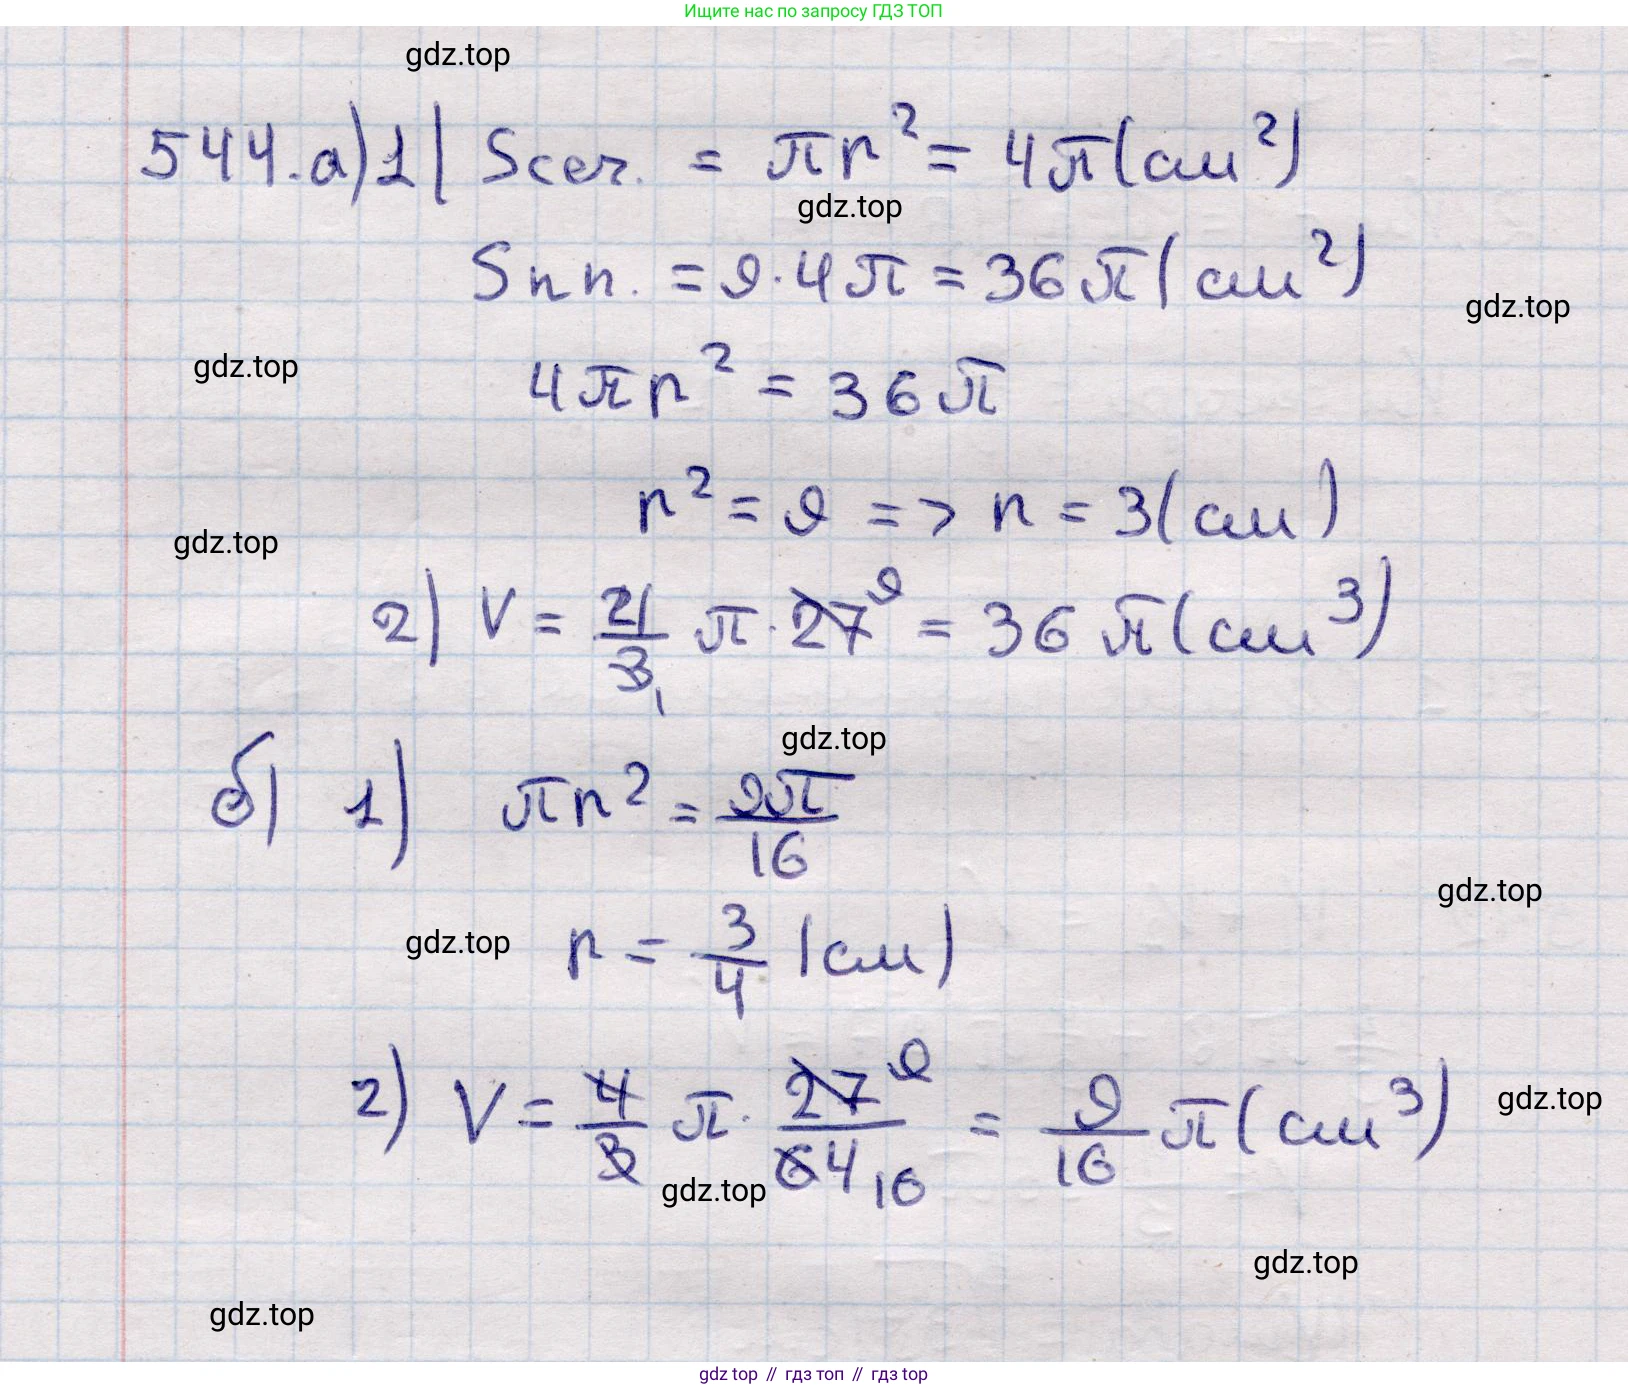 Ищите нас по запросу ГДЗ ТОП
gdz.top
544. а) 1) Sсеч. = πr² = 4π (см²)
gdz.top
Sпп. = 9·4π = 36π (см²)
gdz.top
gdz.top
4πr² = 36π
r² = 9 => r = 3 (см)
gdz.top
2) V = 4/3 1 π · 27 9 = 36π (см³)
gdz.top
б) 1) πr² = 9π/16
gdz.top
gdz.top
r = 3/4 (см)
2) V = 4/3 π · 27 9/64 16 = 9/16 π (см³)
gdz.top
gdz.top
gdz.top
gdz.top
gdz top // гдз топ // гдз top